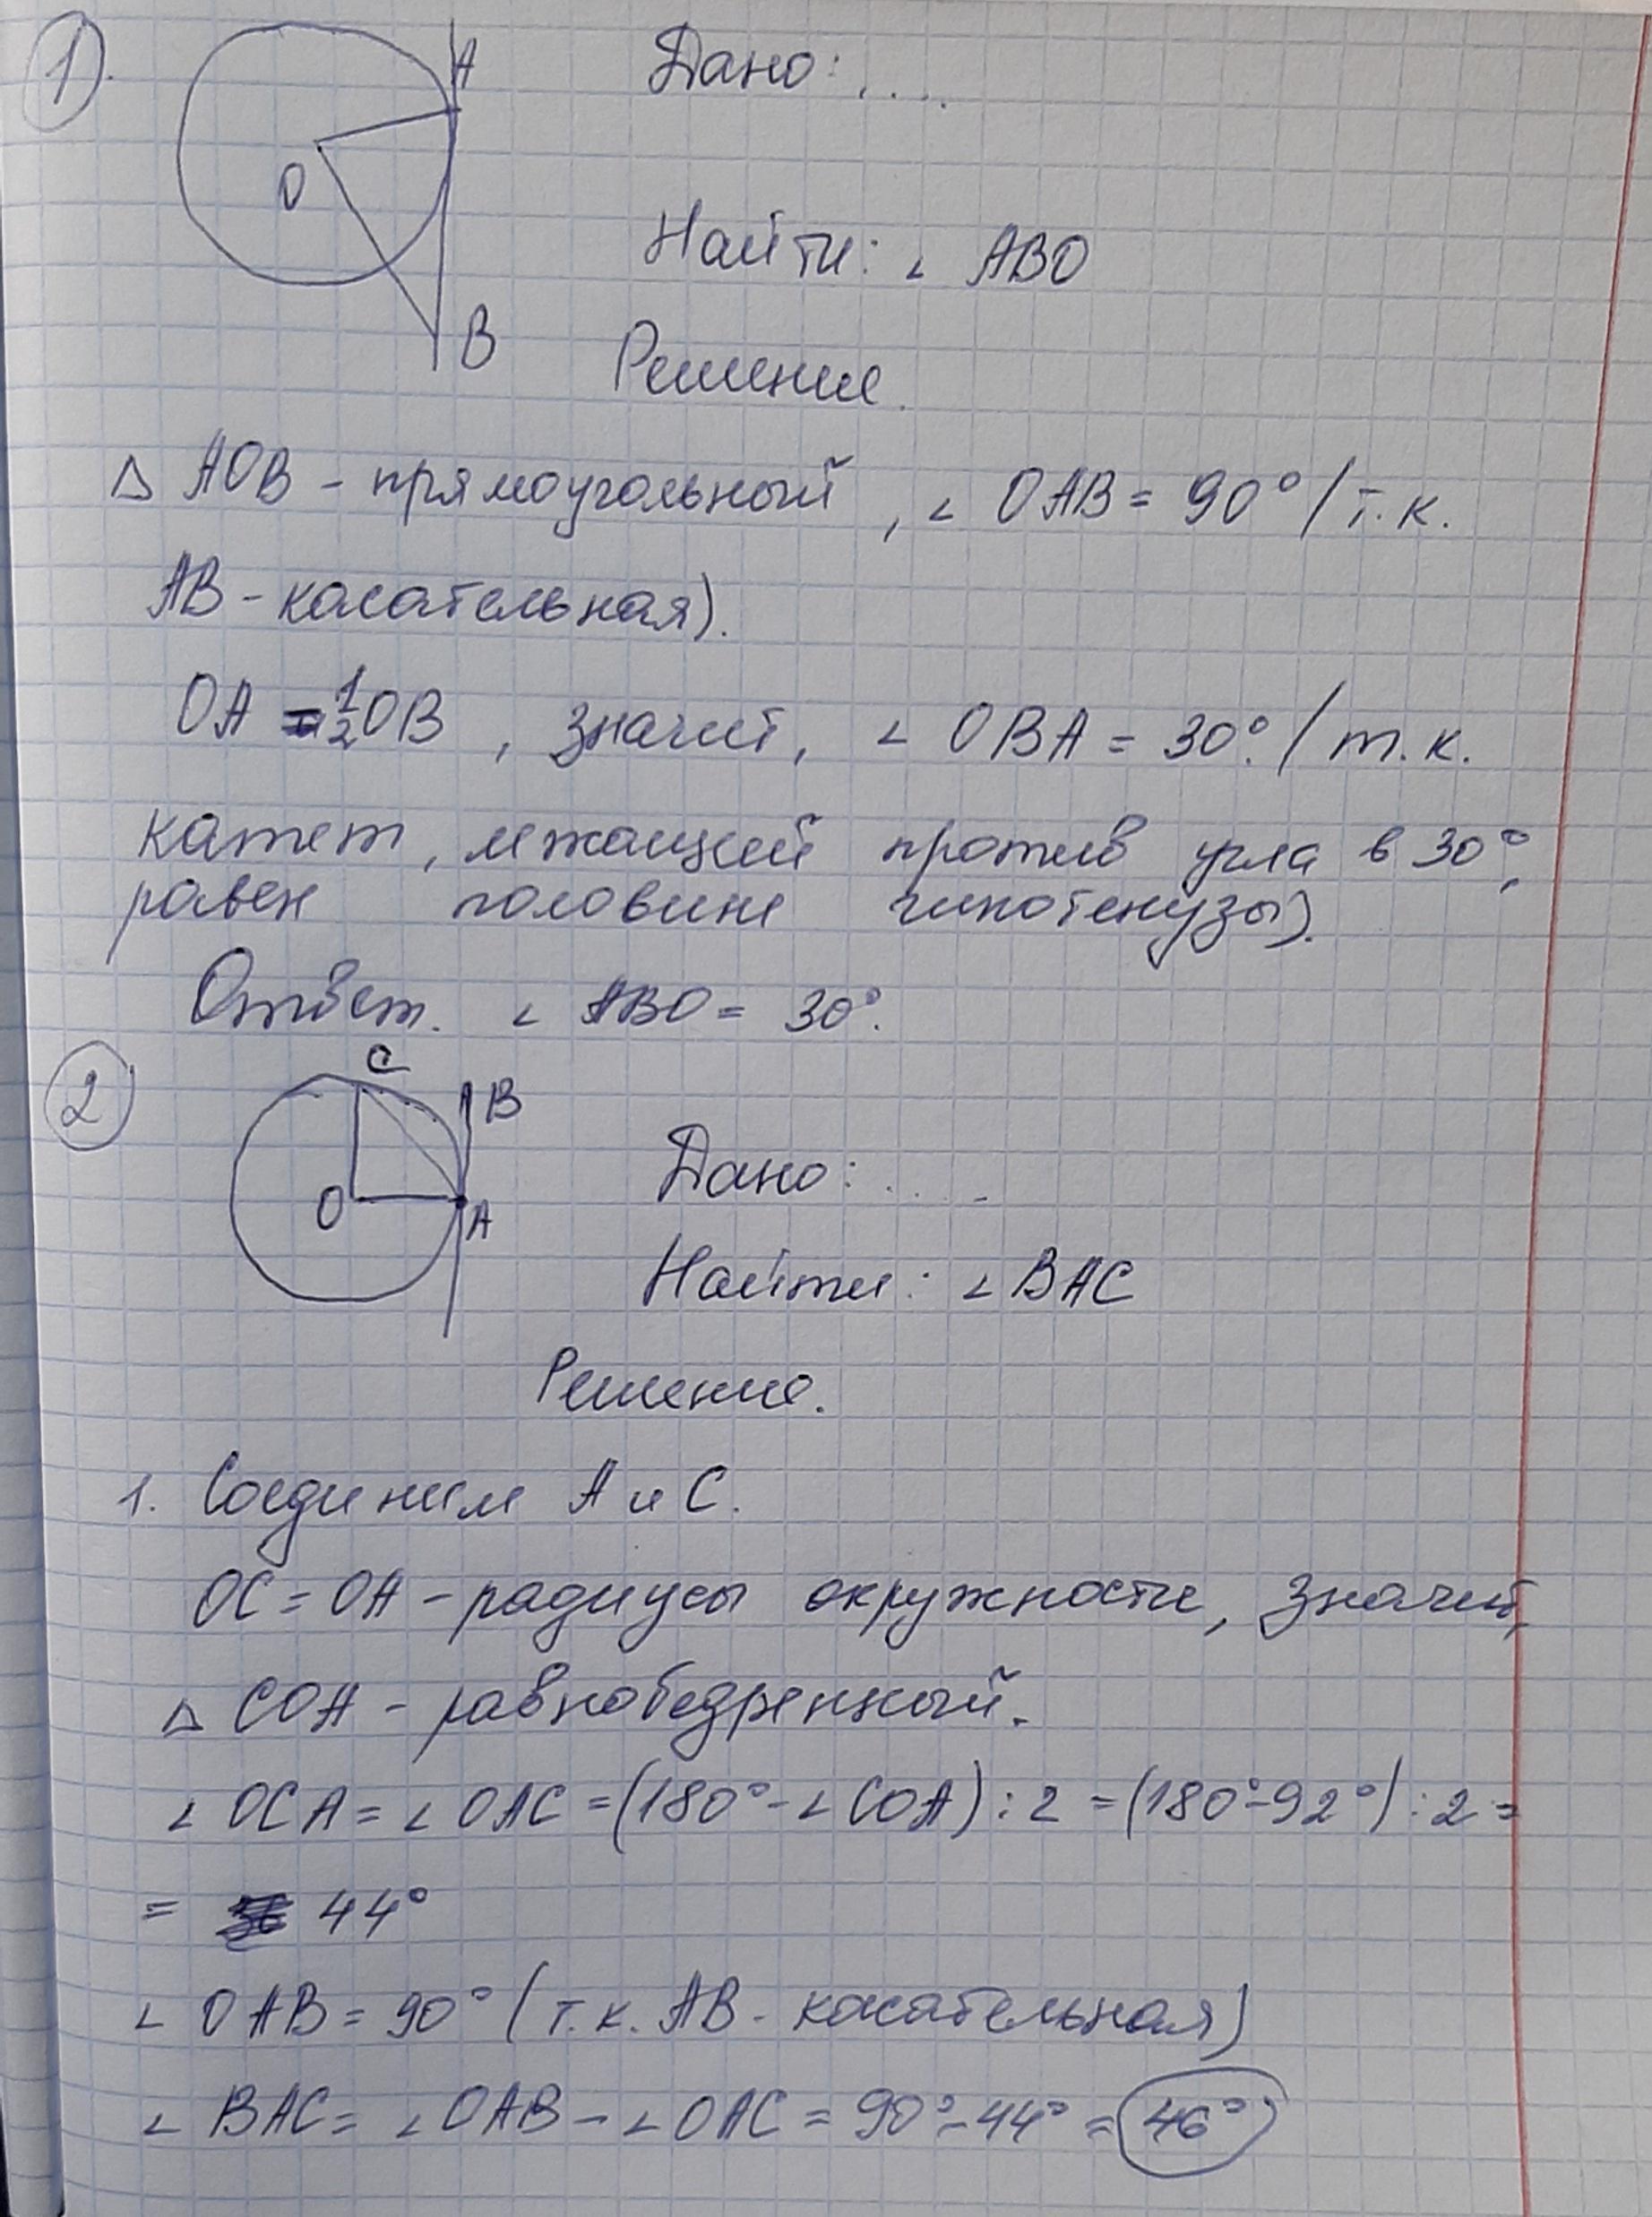 1).
A
O
B
Дано: ....
Найти: ∠ ABO
Решение.
△ AOB - прямоугольный, ∠ OAB = 90° /т.к.
AB - касательная).
OA = 1/2 OB, значит, ∠ OBA = 30°. /т.к.
катет, лежащий против угла в 30°,
равен половине гипотенузы).
Ответ. ∠ ABO = 30°.
2
C
B
O
A
Дано: ....
Найти: ∠ BAC
Решение.
1. Соединим A и C.
OC = OA - радиусы окружности, значит,
△ COA - равнобедренный.
∠ OCA = ∠ OAC = (180° - ∠ COA) : 2 = (180° - 92°) : 2 =
= 44°
∠ OAB = 90° (т.к. AB - касательная)
∠ BAC = ∠ OAB - ∠ OAC = 90° - 44° = 46°